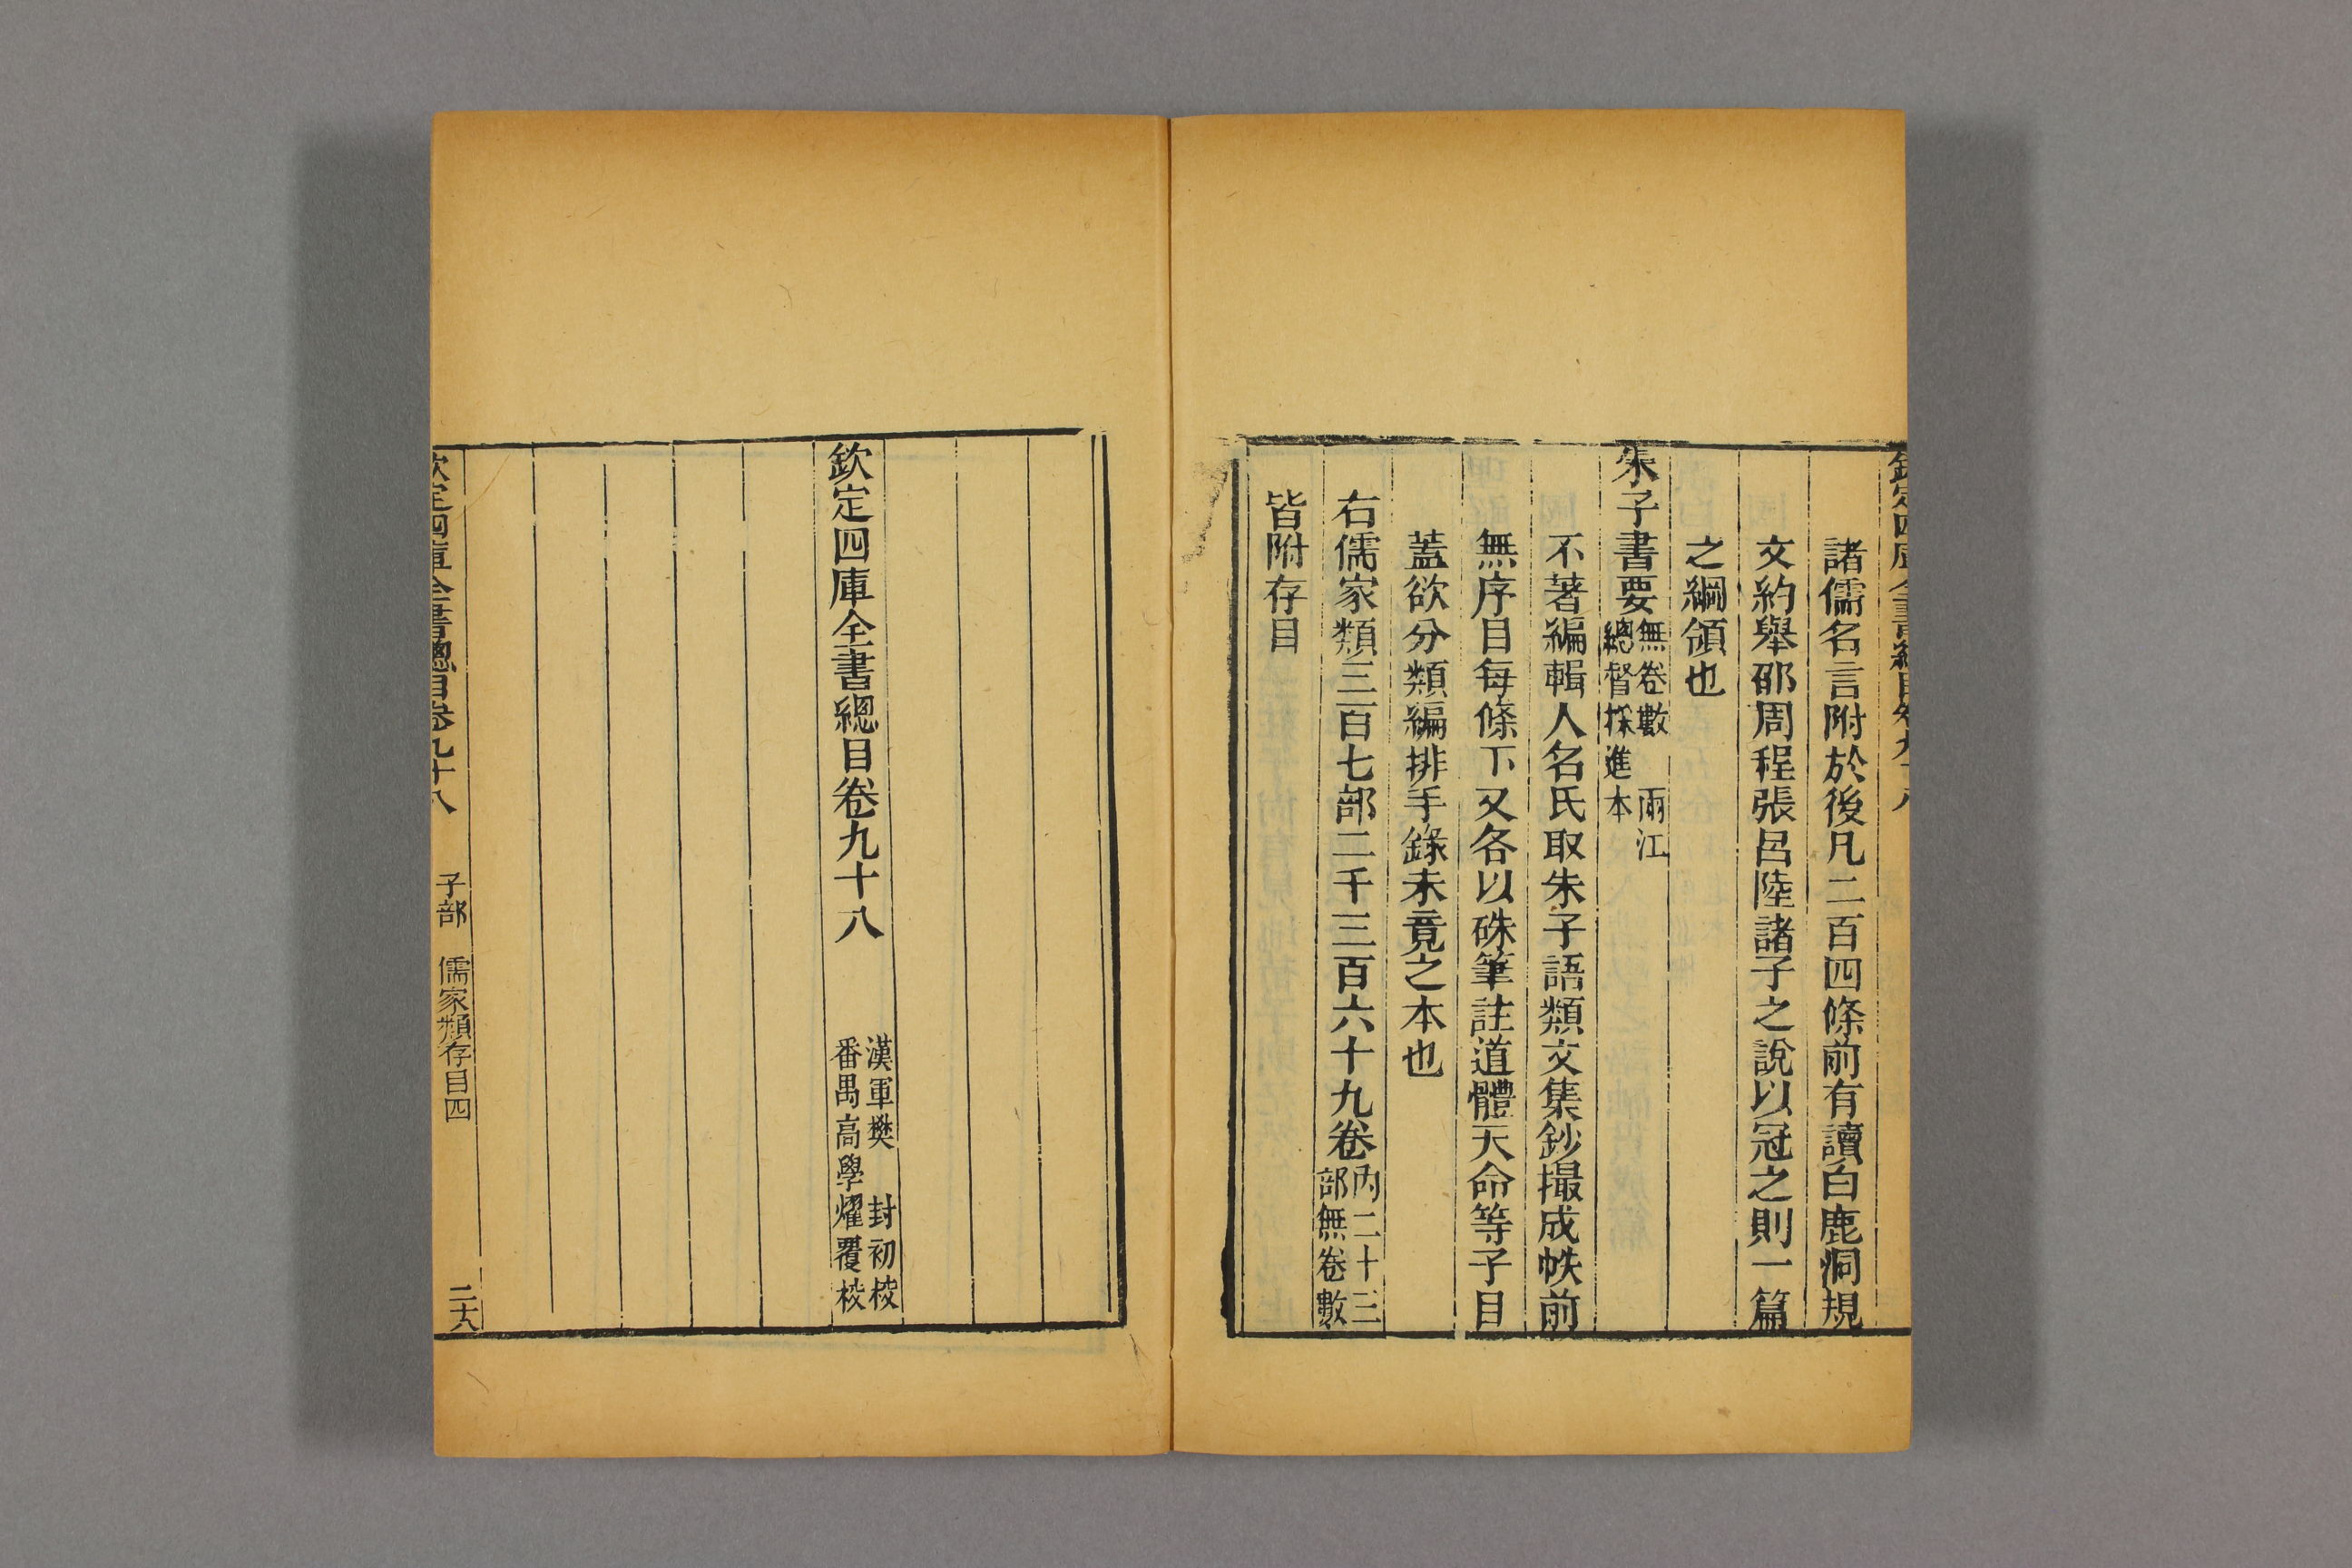 欽定四庫全書總目卷九十八
諸儒名言附於後凡二百四條前有讀白鹿洞規
文約舉邵周程張呂陸諸子之說以冠之則一篇
之綱領也
朱子書要無卷數 兩江
總督採進本
不著編輯人名氏取朱子語類文集鈔撮成帙前
無序目每條下又各以硃筆註道體天命等子目
蓋欲分類編排手錄未竟之本也
右儒家類三百七部二千三百六十九卷內二十三
部無卷數
皆附存目
欽定四庫全書總目卷九十八
漢軍樊 封初校
番禺高學燿覆校
欽定四庫全書總目卷九十八 子部 儒家類存目四 二六